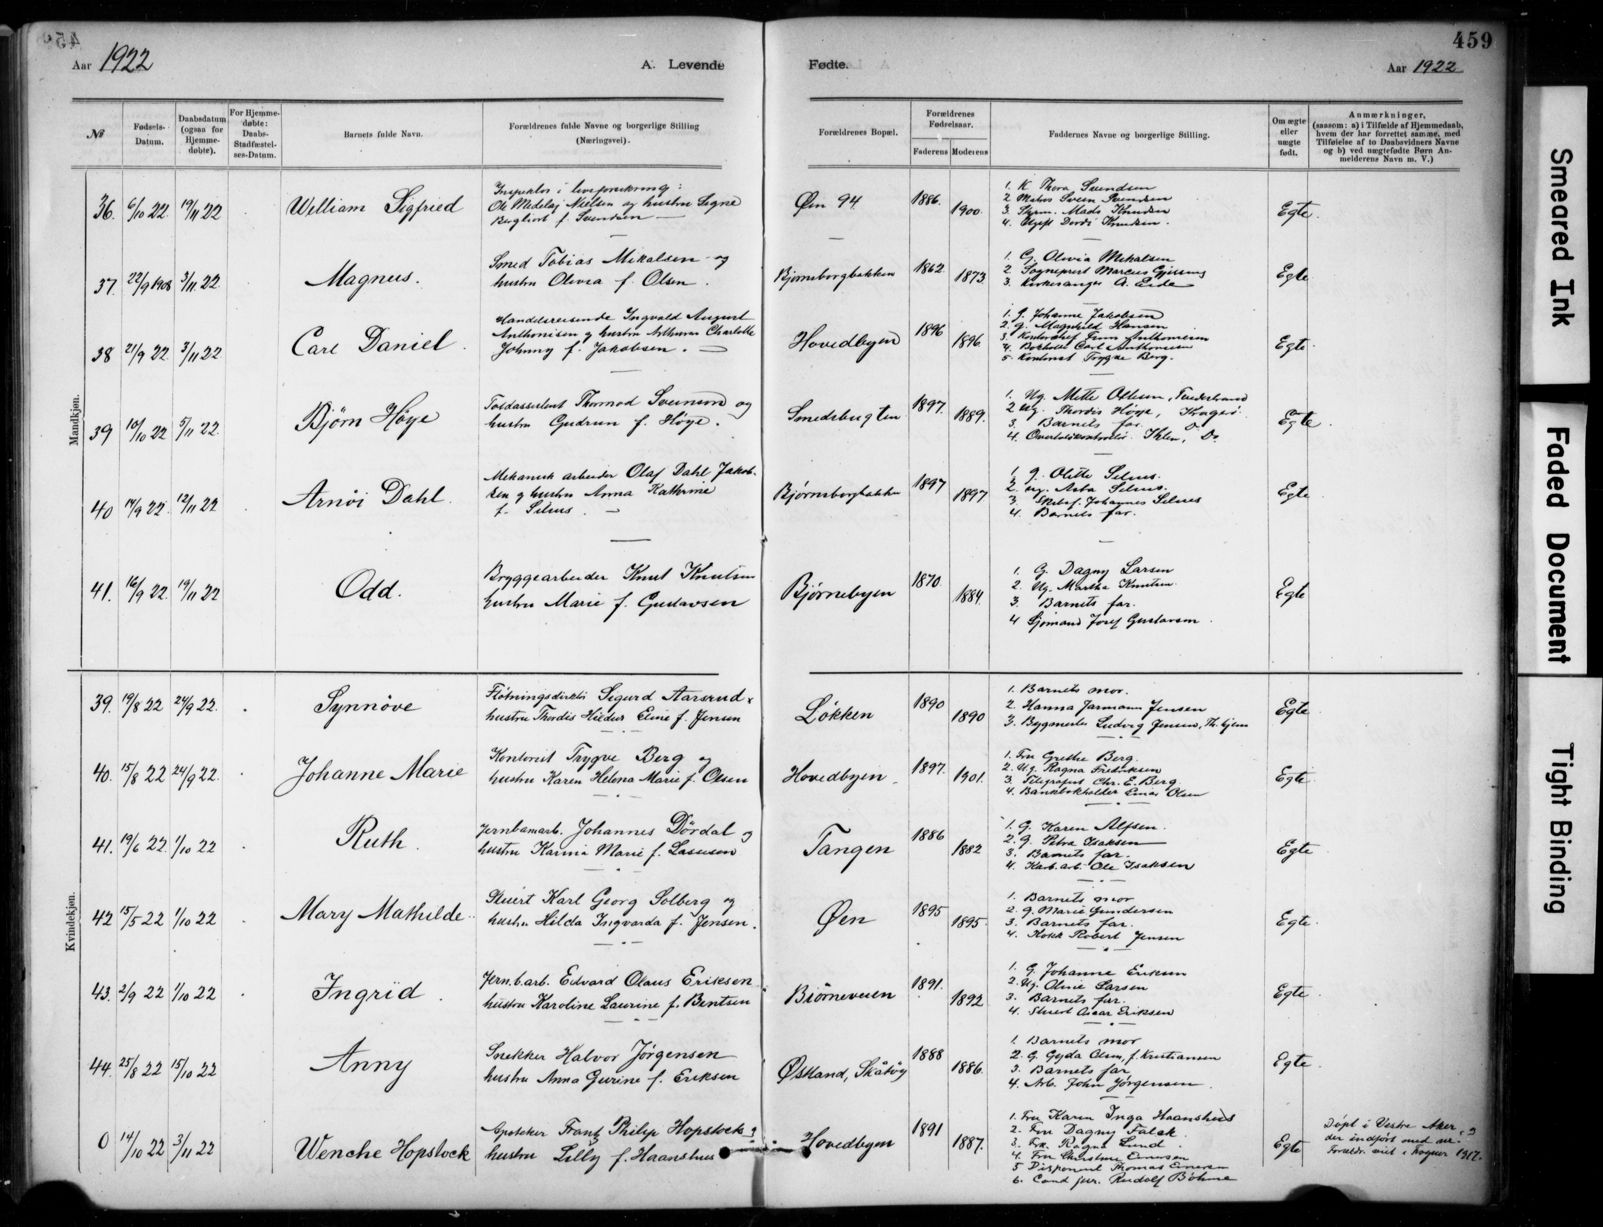 459
Aar 1922
A. Levende
Fødte.
Aar 1922
№
Fødsels-Datum.
Daabsdatum (ogsaa for Hjemmedøbte).
For Hjemmedøbte: Daabs-Stadfæstelses-Datum.
Barnets fulde Navn.
Forældrenes fulde Navne og borgerlige Stilling (Næringsvei).
Forældrenes Bopæl.
Forældrenes Fødselsaar.
Faderens
Moderens
Faddernes Navne og borgerlige Stilling.
Om ægte eller uægte født.
Anmærkninger,
(saasom: a) i Tilfælde af Hjemmedaab, hvem der har forrettet samme, med Tilføielse af to Daabsvidners Navne og b) ved uægtefødte Børn Anmelderens Navn m. V.)
Mandkjøn.
36. 6/10 22 19/11 22
William Sigfried
Inspektør i livsforsikring:
Nielsen og hustru Signe
Bergliot f. Svendsen
Øen 94
1886.
1900.
1. K. Thora Svendsen
2. Svein Svendsen
3. Mads Knudsen
4. Knudsen.
Egte.
37. 22/9 1908 3/11 22
Magnus.
Smed Tobias Mikalsen og
hustru Olivia f. Olsen.
Bjørneborgbakken
1862.
1873.
1. G. Olivia Mikalsen
2. Sogneprest Marcus Gjessing
3. Kirkesanger A. Eide
Egte
38 21/9 22 3/11 22
Carl Daniel.
Handelsreisende Ingvald August
Anthonisen og hustru Charlotte
Johnny f. Jakobsen.
Hovedbyen
1896
1896.
1. G. Johanne Jakobsen
2. G. Magnhild Hansen
3. Anthonisen
4. Bokholder Carl Anthonisen
5. Kontorist Trygve Berg.
Egte.
39 10/10 22 5/11 22.
Bjørn Høye
Toldassistent Thormod Svenson og
hustru Gudrun f. Høye.
Smedsbugten
1897.
1889.
1. Ug. Mette Oltesen,
2. Ug. Thordis Høye, Kragerø.
3. Barnets far.
4. Do
Egte.
40 14/9 22. 12/11 22
Arnøi Dahl.
Mekanisk arbeider Olaf Dahl Jakob-
sen og hustru Anna Kathrine
f. Selius.
Bjørneborgbakken
1897
1897
1. G. Olette Selius.
2. Ug. Asta Selius.
3. Johannes Selius
4. Barnets far.
Egte
41. 16/9 22. 19/11 22
Odd.
Bryggearbeider Knut Knutsen
hustru Marie f. Gustavsen
Bjørnebyen
1870
1884.
1. G. Dagny Larsen
2. Ug. Martha Knutsen
3. Barnets far.
4 Sjømand Josef Gustavsen.
Egte
Kvindekjøn.
39. 19/8 22 24/9 22.
Synnøve
Fløtningsdirektør Sigurd Aarsrud
hustru Thordis Eline f. Jensen
Løkken
1890
1890
1. Barnets mor.
2. Hanna Jarmann Jensen
3. Bygmester Ludvig Jensen,
Egte
40. 15/8 22 24/9 22.
Johanne Marie
Kontorist Trygve Berg og
hustru Karen Helena Marie f. Olsen
Hovedbyen
1897.
1901.
1. Fru Grethe Berg.
2. Ug. Ragna Fredriksen
3. Telegrafist Chr. E. Berg.
4. Bankbokholder Einar Olsen
Egte
41. 19/6 22. 1/10 22
Ruth.
Jernbanearb. Johannes Dørdal og
hustru Karina Marie f. Lassesen
Tangen
1886
1882
1. G. Karen Alfsen.
2. G. Petra Isaksen
3. Barnets far.
4. Ole Isaksen
Egte
42 15/5 22 1/10 22
Mary Mathilde.
Stuert Karl Georg Solberg og
hustru Hilda Ingvarda f. Jensen.
Øen
1895
1895.
1. Barnets mor
2. G. Marie Gundersen
3. Barnets far.
4. Kokk Robert Jensen
Egte
43. 2/9 22 1/10 22
Ingrid.
Jernb.arb. Edvard Olaus Eriksen
hustru Karoline Laurine f. Bentsen
Bjørneveien
1891.
1892.
1. G. Johanne Eriksen
2. Ug. Larsen
3. Barnets far.
4. Stuert Oscar Eriksen
Egte
44. 25/8 22 15/10 22
Anny
Snekker Halvor Jørgensen
hustru Anna Gurine f. Eriksen
Østland, Skåtøy
1888
1886.
1. Barnets mor
2. G. Gyda Olsen, f. Kristiansen
3. Barnets far
4. Arb. John Jørgensen.
Egte
0 14/10 22 3/11 22
Wenche Hopstock
Apoteker Frantz Philip Hopstock og
hustru Lilly f. Haanshus
Hovedbyen
1891
1887.
1. Fru Karen Inga Haanshus
2. Fru Dagny Falck
3. Frk. Ragna Lund
4. Fru
5 Disponent Thomas
6. Cand jur. Rudolf Bøhme
Egte
Døpt i Vestre Aker og
der indført med nr.
1917.
Smeared Ink
Faded Document
Tight Binding